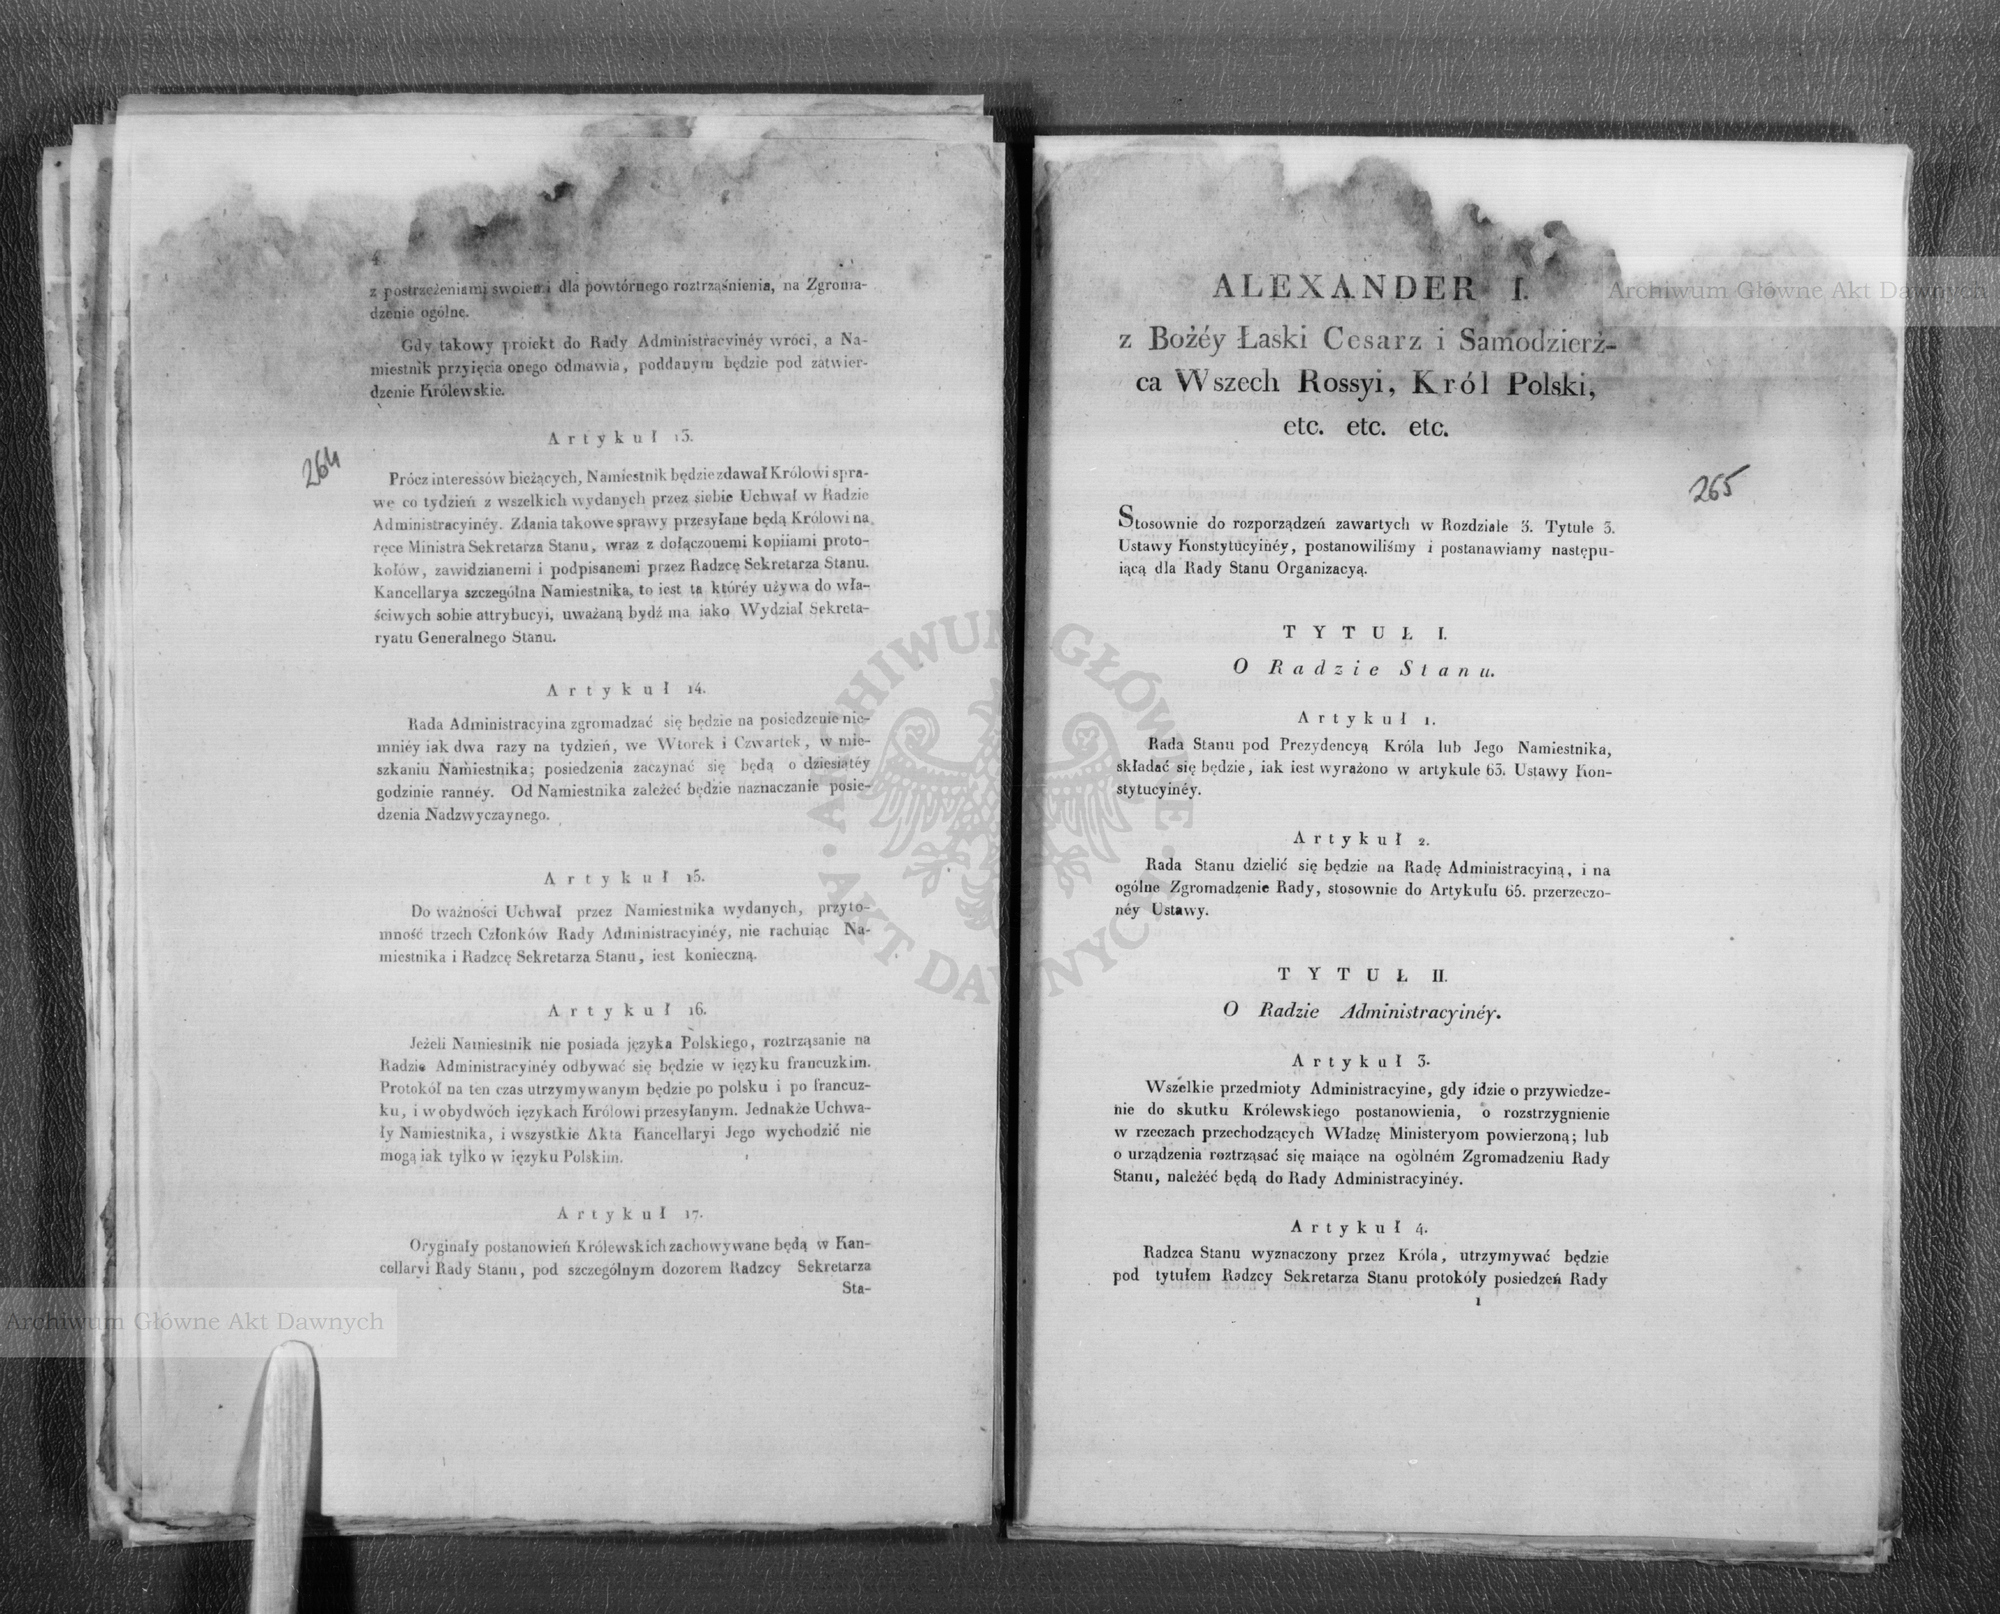 4
z postrzeżeniami swoiemi dla powtórnego roztrząśnienia, na Zgroma-
dzenie ogólne.
Gdy takowy proiekt do Rady Administracyinéy wróci, a Na-
miestnik przyięcia onego odmawia, poddanym będzie pod zatwier-
dzenie Królewskie.
Artykuł 13.
264
Prócz interessów bieżących, Namiestnik będzie zdawał Królowi spra-
wę co tydzień z wszelkich wydanych przez siebie Uchwał w Radzie
Administracyinéy. Zdania takowe sprawy przesyłane będą Królowi na
ręce Ministra Sekretarza Stanu, wraz z dołączonemi kopiiami proto-
kołów, zawidzianemi i podpisanemi przez Radzcę Sekretarza Stanu.
Kancellarya szczególna Namiestnika, to iest ta któréy używa do wła-
ściwych sobie attrybucyi, uważaną bydź ma iako Wydział Sekreta-
ryatu Generalnego Stanu.
Artykuł 14.
Rada Administracyina zgromadzać się będzie na posiedzenie nie-
mniéy iak dwa razy na tydzień, we Wtorek i Czwartek, w mie-
szkaniu Namiestnika; posiedzenia zaczynać się będą o dziesiątéy
godzinie rannéy. Od Namiestnika zależeć będzie naznaczanie posie-
dzenia Nadzwyczaynego.
Artykuł 15.
Do ważności Uchwał przez Namiestnika wydanych, przyto-
mność trzech Członków Rady Administracyinéy, nie rachuiąc Na-
miestnika i Radzcę Sekretarza Stanu, iest konieczną.
Artykuł 16.
Jeżeli Namiestnik nie posiada języka Polskiego, roztrząsanie na
Radzie Administracyinéy odbywać się będzie w ięzyku francuzkim.
Protokół na ten czas utrzymywanym będzie po polsku i po francuz-
ku, i w obydwóch ięzykach Królowi przesyłanym. Jednakże Uchwa-
ły Namiestnika, i wszystkie Akta Kancellaryi Jego wychodzić nie
mogą iak tylko w ięzyku Polskim.
Artykuł 17.
Oryginały postanowień Królewskich zachowywane będą w Kan-
cellaryi Rady Stanu, pod szczególnym dozorem Radzcy Sekretarza
Sta-
Archiwum Główne Akt Dawnych
ARCHIWUM GŁÓWNE · AKT DAWNYCH ·
ALEXANDER I.
Archiwum Główne Akt Dawnych
z Bożéy Łaski Cesarz i Samodzierż-
ca Wszech Rossyi, Król Polski,
etc. etc. etc.
265
Stosownie do rozporządzeń zawartych w Rozdziale 3. Tytule 3.
Ustawy Konstytucyinéy, postanowiliśmy i postanawiamy następu-
iącą dla Rady Stanu Organizacyą.
TYTUŁ I.
O Radzie Stanu.
Artykuł 1.
Rada Stanu pod Prezydencyą Króla lub Jego Namiestnika,
składać się będzie, iak iest wyrażono w artykule 63. Ustawy Kon-
stytucyinéy.
Artykuł 2.
Rada Stanu dzielić się będzie na Radę Administracyiną, i na
ogólne Zgromadzenie Rady, stosownie do Artykułu 65. przerzeczo-
néy Ustawy.
TYTUŁ II.
O Radzie Administracyinéy.
Artykuł 3.
Wszelkie przedmioty Administracyine, gdy idzie o przywiedze-
nie do skutku Królewskiego postanowienia, o rozstrzygnienie
w rzeczach przechodzących Władzę Ministeryom powierzoną; lub
o urządzenia roztrząsać się maiące na ogólném Zgromadzeniu Rady
Stanu, należéć będą do Rady Administracyinéy.
Artykuł 4.
Radzca Stanu wyznaczony przez Króla, utrzymywać będzie
pod tytułem Radzcy Sekretarza Stanu protokóły posiedzeń Rady
1